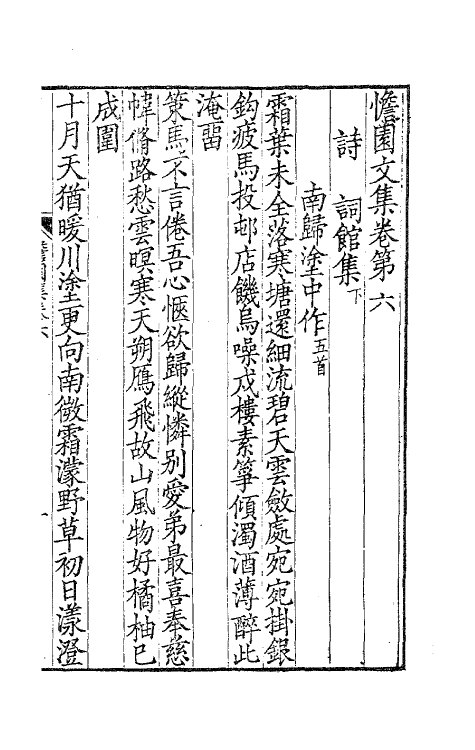 憺園文集卷第六
詩　詞館集下
南歸塗中作五首
霜葉未全落寒塘還細流碧天雲斂處宛宛掛銀
鈎疲馬投邨店饑烏噪戍樓素箏傾濁酒薄醉此
淹畱
策馬不言倦吾心愜欲歸縱憐別愛弟最喜奉慈
幃脩路愁雲暝寒天朔鴈飛故山風物好橘柚已
成圍
十月天猶暖川塗更向南微霜濛野草初日漾澄